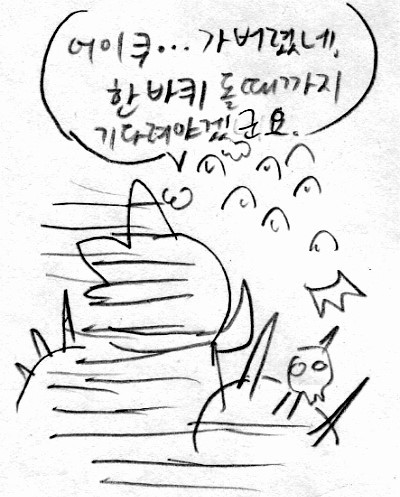 어이쿠... 가버렸네,
한 바퀴 돌 때까지
기다려야겠군요.